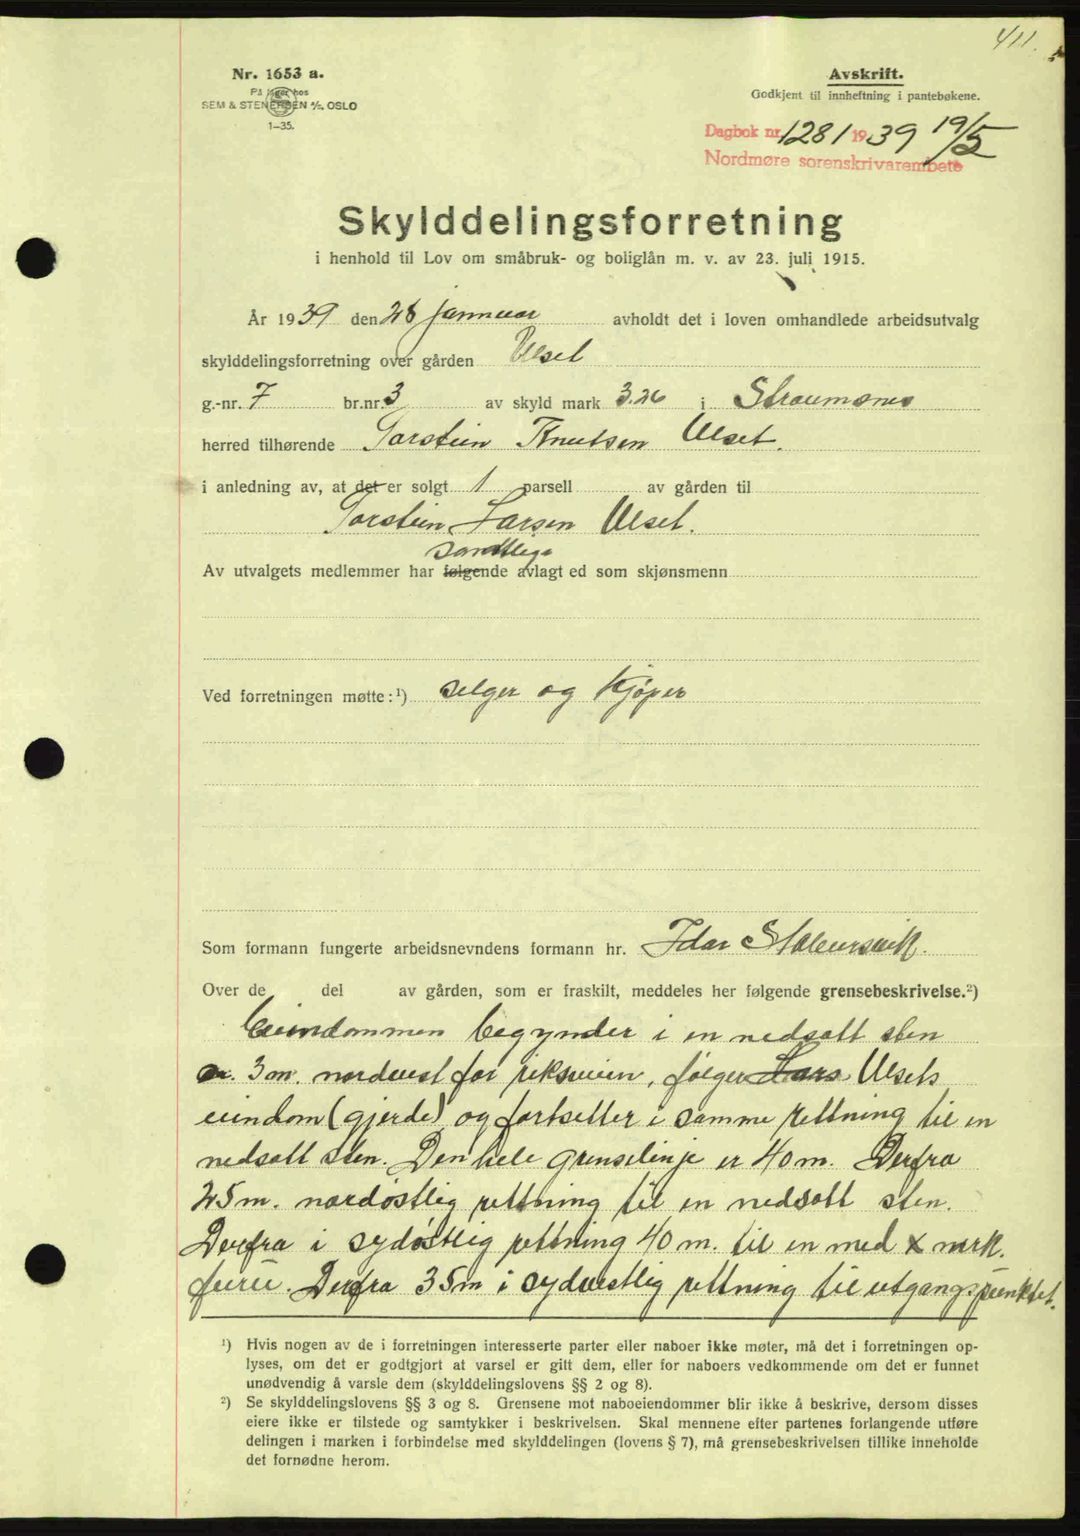 411.
Nr. 1653 a.
På lager hos
SEM & STENERSEN A/S, OSLO
1-35.
Avskrift.
Godkjent til innheftning i pantebøkene.
Dagbok nr. 1281 1939 19/5
Nordmøre sorenskrivarembete
Skylddelingsforretning
i henhold til Lov om småbruk- og boliglån m. v. av 23. juli 1915.
År 1939 den 28 januar avholdt det i loven omhandlede arbeidsutvalg
skylddelingsforretning over gården Ulset
g.-nr. 7 br.nr. 3 av skyld mark 3.26 i Straumsnes
herred tilhørende Torstein Knutsen Ulset.
i anledning av, at det er solgt 1 parsell av gården til
Torstein Larsen Ulset.
samtlige
Av utvalgets medlemmer har følgende avlagt ed som skjønsmenn
Ved forretningen møtte: ¹) selger og kjøper
Som formann fungerte arbeidsnevndens formann hr. Idar
Over de del av gården, som er fraskilt, meddeles her følgende grensebeskrivelse.²)
Eiendommen begynder i en nedsatt sten
3 m. nordvest for riksveien, følger Lars Ulsets
eiendom (gjerde) og fortsetter i samme rettning til en
nedsatt sten. Den hele grenselinje er 40 m. Derfra
25 m. nordøstlig rettning til en nedsatt sten.
Derfra i sydøstlig rettning 40 m. til en med x merk.
furu. Derfra 35 m i sydvestlig rettning til utgangspunktet.
¹) Hvis nogen av de i forretningen interesserte parter eller naboer ikke møter, må det i forretningen op-
lyses, om det er godtgjort at varsel er gitt dem, eller for naboers vedkommende om det er funnet
unødvendig å varsle dem (skylddelingslovens §§ 2 og 8).
²) Se skylddelingslovens §§ 3 og 8. Grensene mot naboeiendommer blir ikke å beskrive, dersom disses
eiere ikke er tilstede og samtykker i beskrivelsen. Skal mennene efter partenes forlangende utføre
delingen i marken i forbindelse med skylddelingen (lovens § 7), må grensebeskrivelsen tillike inneholde
det fornødne herom.